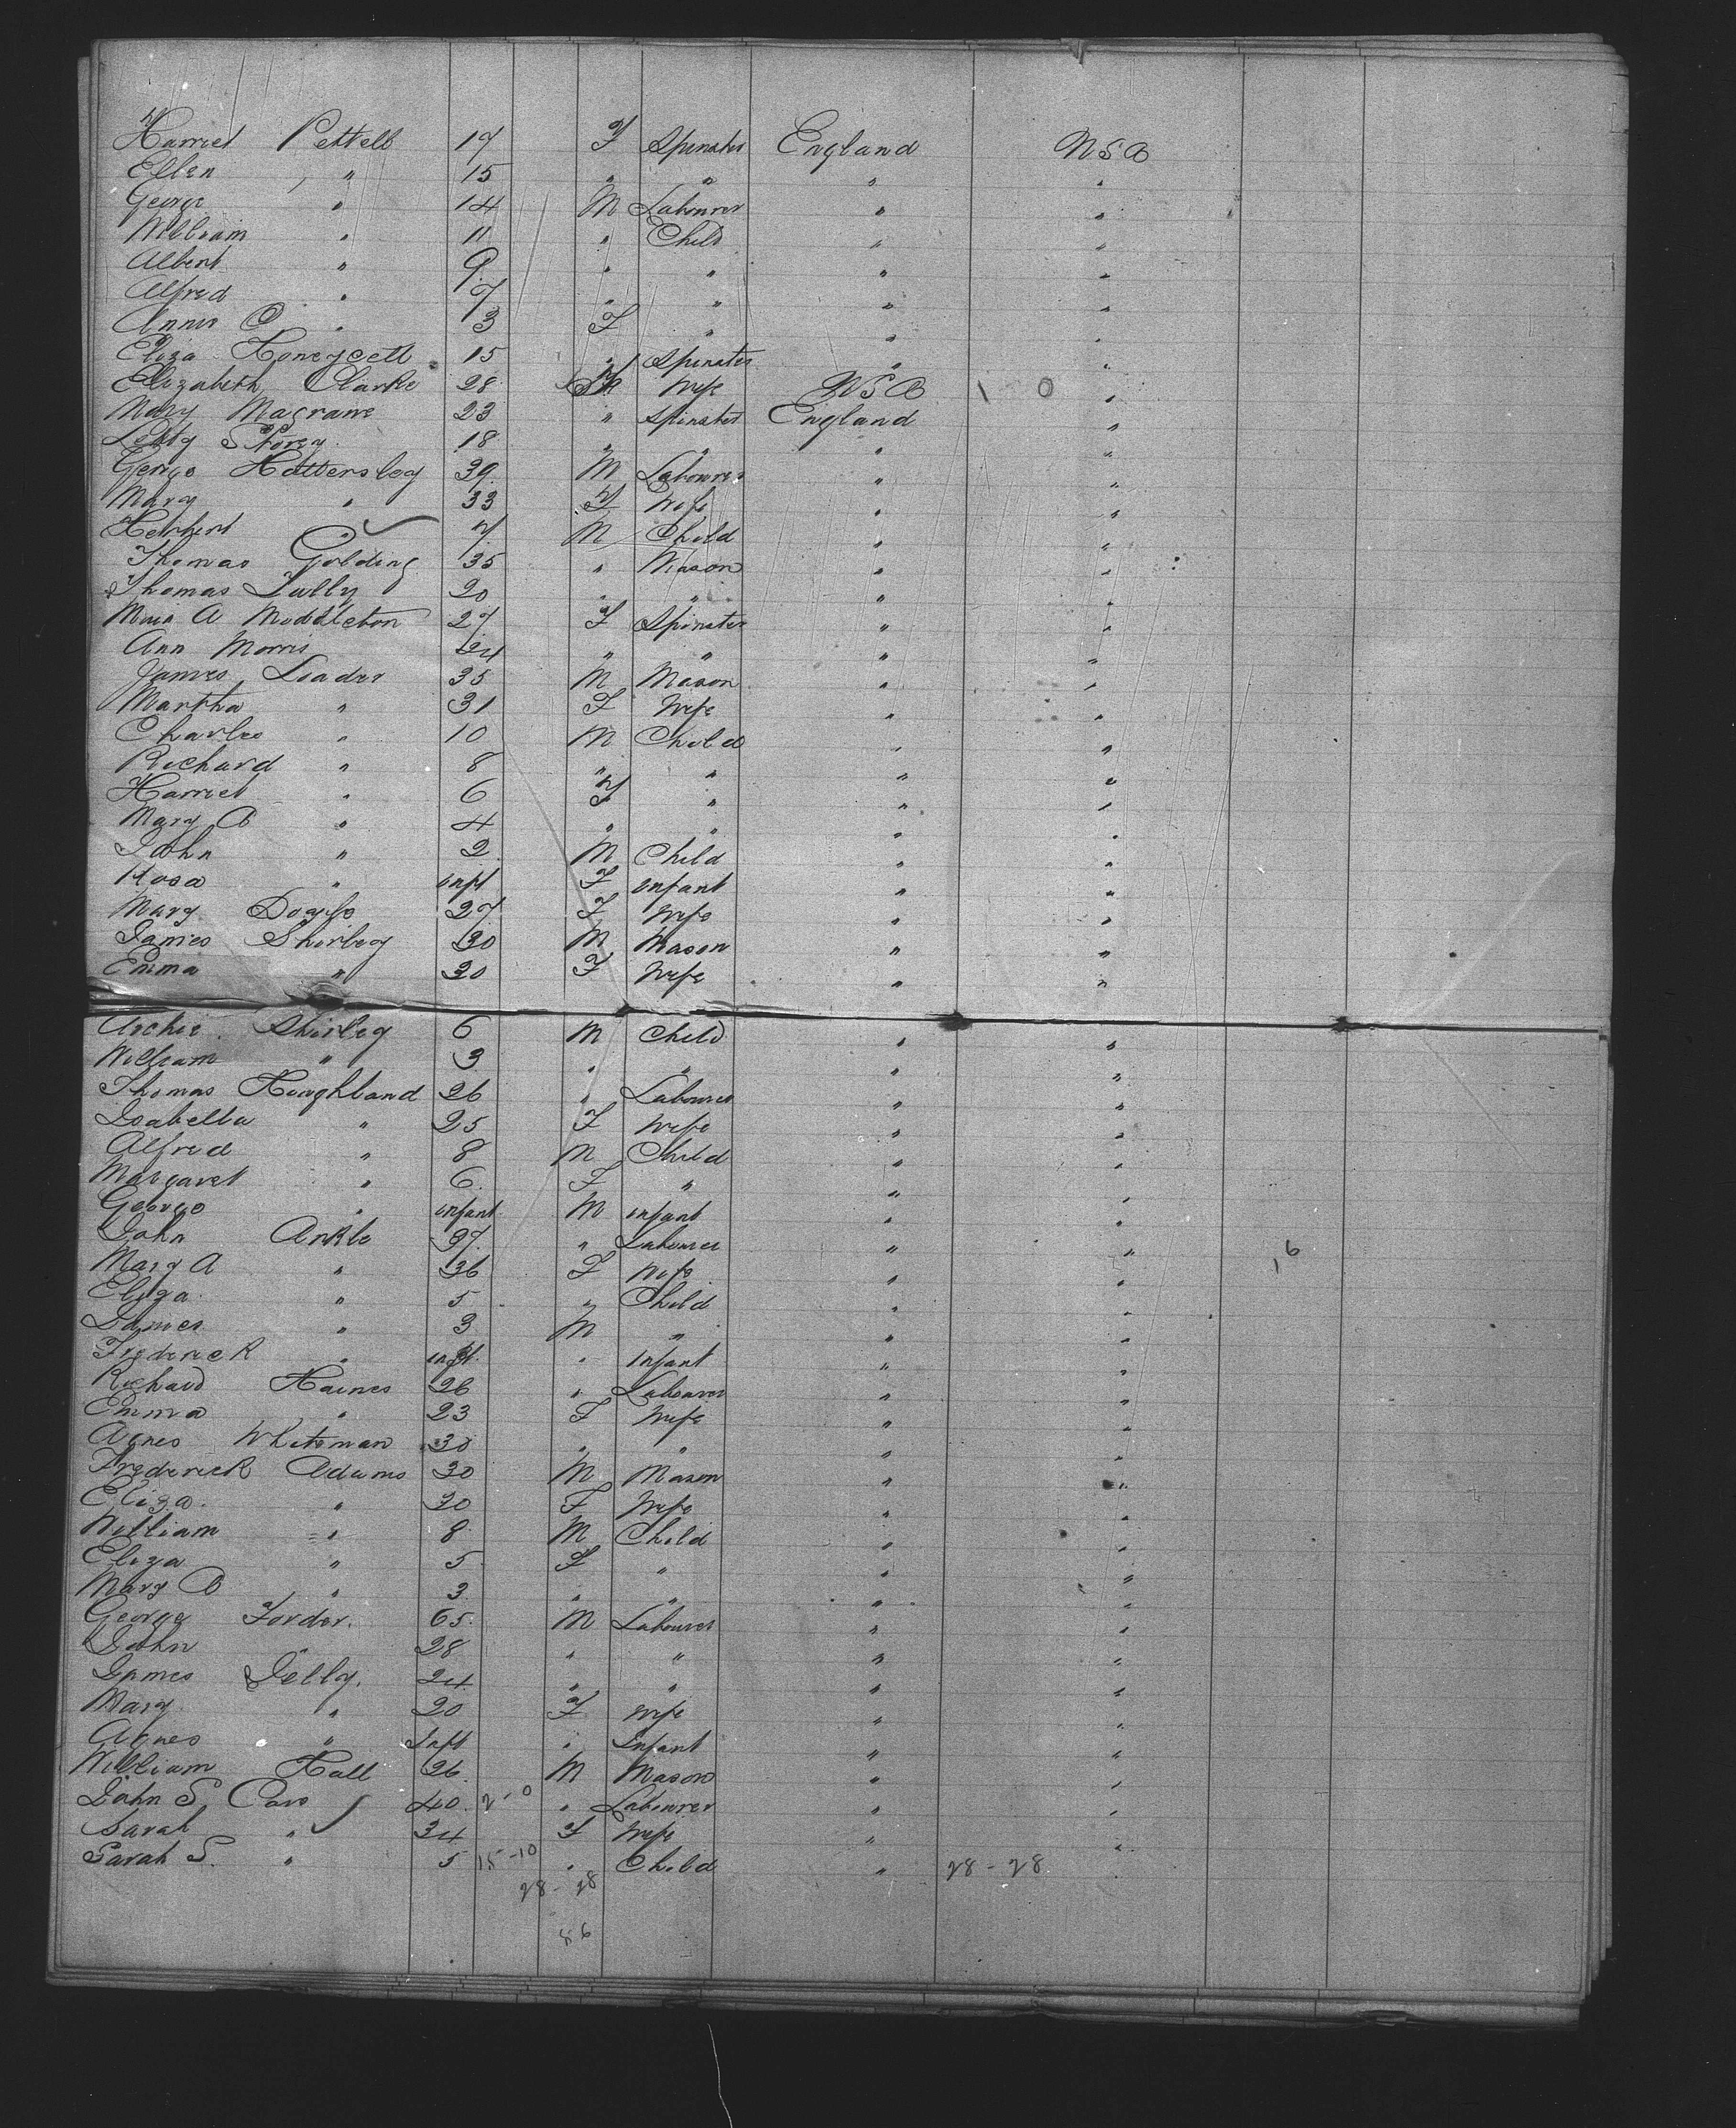 Harriet Pettell 17 F Spinster England USA
Ellen " 15 " " " "
George " 14 M Labourer " "
William " 11 " Child " "
Albert " 9 " " " "
Alfred " 7 " " " "
Annie O " 3 F " " "
Eliza Honeysett 15 " Spinster " "
Elizabeth Clarke 28 F Wife USA 1 0 "
Mary Magrane 23 " Spinster England "
Letty Storey 18 " " " "
George Hattersley 39 M Labourer " "
Mary " 33 F Wife " "
Herbert " 7 M Child " "
Thomas Golding 35 " Mason " "
Thomas Lully 20 " " " "
A Middleton 27 F Spinster " "
Ann Morris 24 " " " "
James Leader 35 M Mason " "
Martha " 31 F Wife " "
Charles " 10 M Child " "
Richard " 8 " " " "
Harriet " 6 F " " "
Mary A " 4 " " " "
John " 2 M Child " "
Rosa " inft F infant " "
Mary 27 F Wife " "
James Shirley 30 M Mason " "
Emma " 30 F Wife " "
Archie Shirley 6 M Child " "
William " 3 " " " "
Thomas Houghland 26 " Labourer " "
Isabella " 25 F Wife " "
Alfred " 8 M Child " "
Margaret " 6 F " " "
George " infant M infant " "
John Ankle 37 " Labourer " " 16
Mary A " 36 F Wife " "
Eliza " 5 " Child " "
James " 3 M " " "
Frederick " inft " infant " "
Richard Haines 26 " Labourer " "
Emma " 23 F Wife " "
Agnes Whiteman 30 " " " "
Frederick Adams 30 M Mason " "
Eliza " 30 F Wife " "
William " 8 M Child " "
Eliza " 5 F " " "
Mary A " 3 " " " "
George Forder 65 M Labourer " "
John " 28 " " " "
James Jelly 24 " " " "
Mary " 20 F Wife " "
Agnes " Inft " Infant " "
William Hall 26 M Mason " "
John S 40 2-0 " Labourer " "
Sarah " 34 F Wife " "
Sarah S. " 5 15-10 " Child " 28-28 "
28-28
56